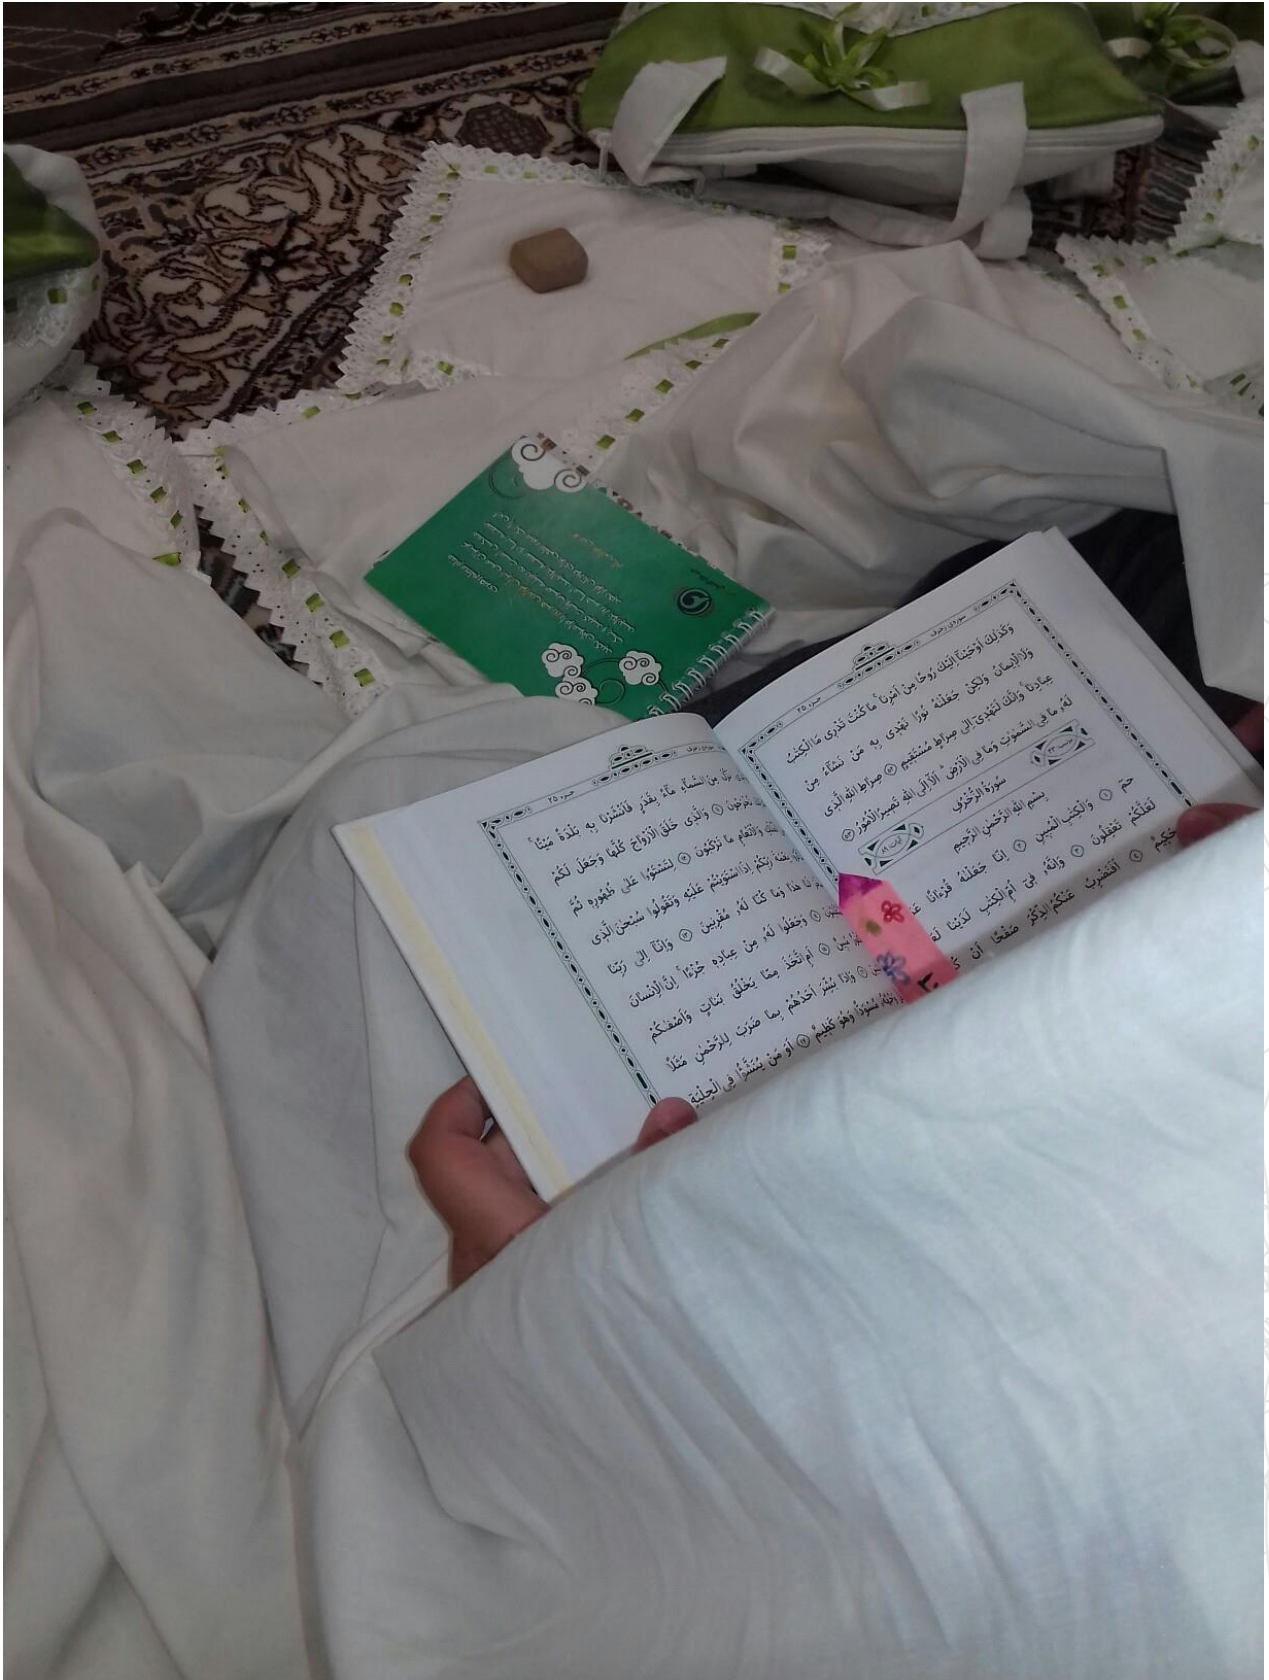 سوره‌ی زخرف جزء ۲۵
وَكَذٰلِكَ اَوْحَيْنَآ اِلَيْكَ رُوحًا مِنْ اَمْرِنَا ۚ ما كُنْتَ تَدْرى مَا الْكِتٰبُ
وَلَا الْايمانُ وَلٰكِنْ جَعَلْنٰهُ نُورًا نَهْدى بِهٖ مَنْ نَشَآءُ مِنْ
عِبادِنا ۚ وَاِنَّكَ لَتَهْدىٓ اِلىٰ صِراطٍ مُسْتَقيمٍ ۵۲ صِراطِ اللهِ الَّذى
لَهُ ما فِى السَّمٰوٰتِ وَما فِى الْاَرْضِ ۗ اَلَآ اِلَى اللهِ تَصيرُ الْاُمُورُ ۵۳
سُورَةُ الزُّخْرُفِ آیات ۸۹
بِسْمِ اللهِ الرَّحْمٰنِ الرَّحيمِ
حٰمٓ ۱ وَالْكِتٰبِ الْمُبينِ ۲ اِنّا جَعَلْنٰهُ قُرْءانًا
لَعَلَّكُمْ تَعْقِلُونَ ۳ وَاِنَّهُ فىٓ اُمِّ الْكِتٰبِ لَدَيْنا
حَكيمٌ ۴ اَفَنَضْرِبُ عَنْكُمُ الذِّكْرَ صَفْحًا اَنْ
سوره‌ی زخرف جزء ۲۵
نَزَّلَ مِنَ السَّمآءِ مآءً بِقَدَرٍ فَاَنْشَرْنا بِهٖ بَلْدَةً مَيْتًا ۚ
تُخْرَجُونَ ۱۱ وَالَّذى خَلَقَ الْاَزْواجَ كُلَّها وَجَعَلَ لَكُمْ
وَالْاَنْعامِ ما تَرْكَبُونَ ۱۲ لِتَسْتَوُۥا عَلىٰ ظُهُورِهٖ ثُمَّ
نِعْمَةَ رَبِّكُمْ اِذَا اسْتَوَيْتُمْ عَلَيْهِ وَتَقُولُوا سُبْحٰنَ الَّذى
لَنا هٰذا وَما كُنّا لَهُ مُقْرِنينَ ۱۳ وَاِنّآ اِلىٰ رَبِّنا
۱۴ وَجَعَلُوا لَهُ مِنْ عِبادِهٖ جُزْءًا ۚ اِنَّ الْاِنْسانَ
مُبينٌ ۱۵ اَمِ اتَّخَذَ مِمّا يَخْلُقُ بَناتٍ وَاَصْفٰىكُمْ
۱۶ وَاِذا بُشِّرَ اَحَدُهُمْ بِما ضَرَبَ لِلرَّحْمٰنِ مَثَلًا
وَجْهُهُ مُسْوَدًّا وَهُوَ كَظيمٌ ۱۷ اَوَ مَنْ يُنَشَّؤُا فِى الْحِلْيَةِ